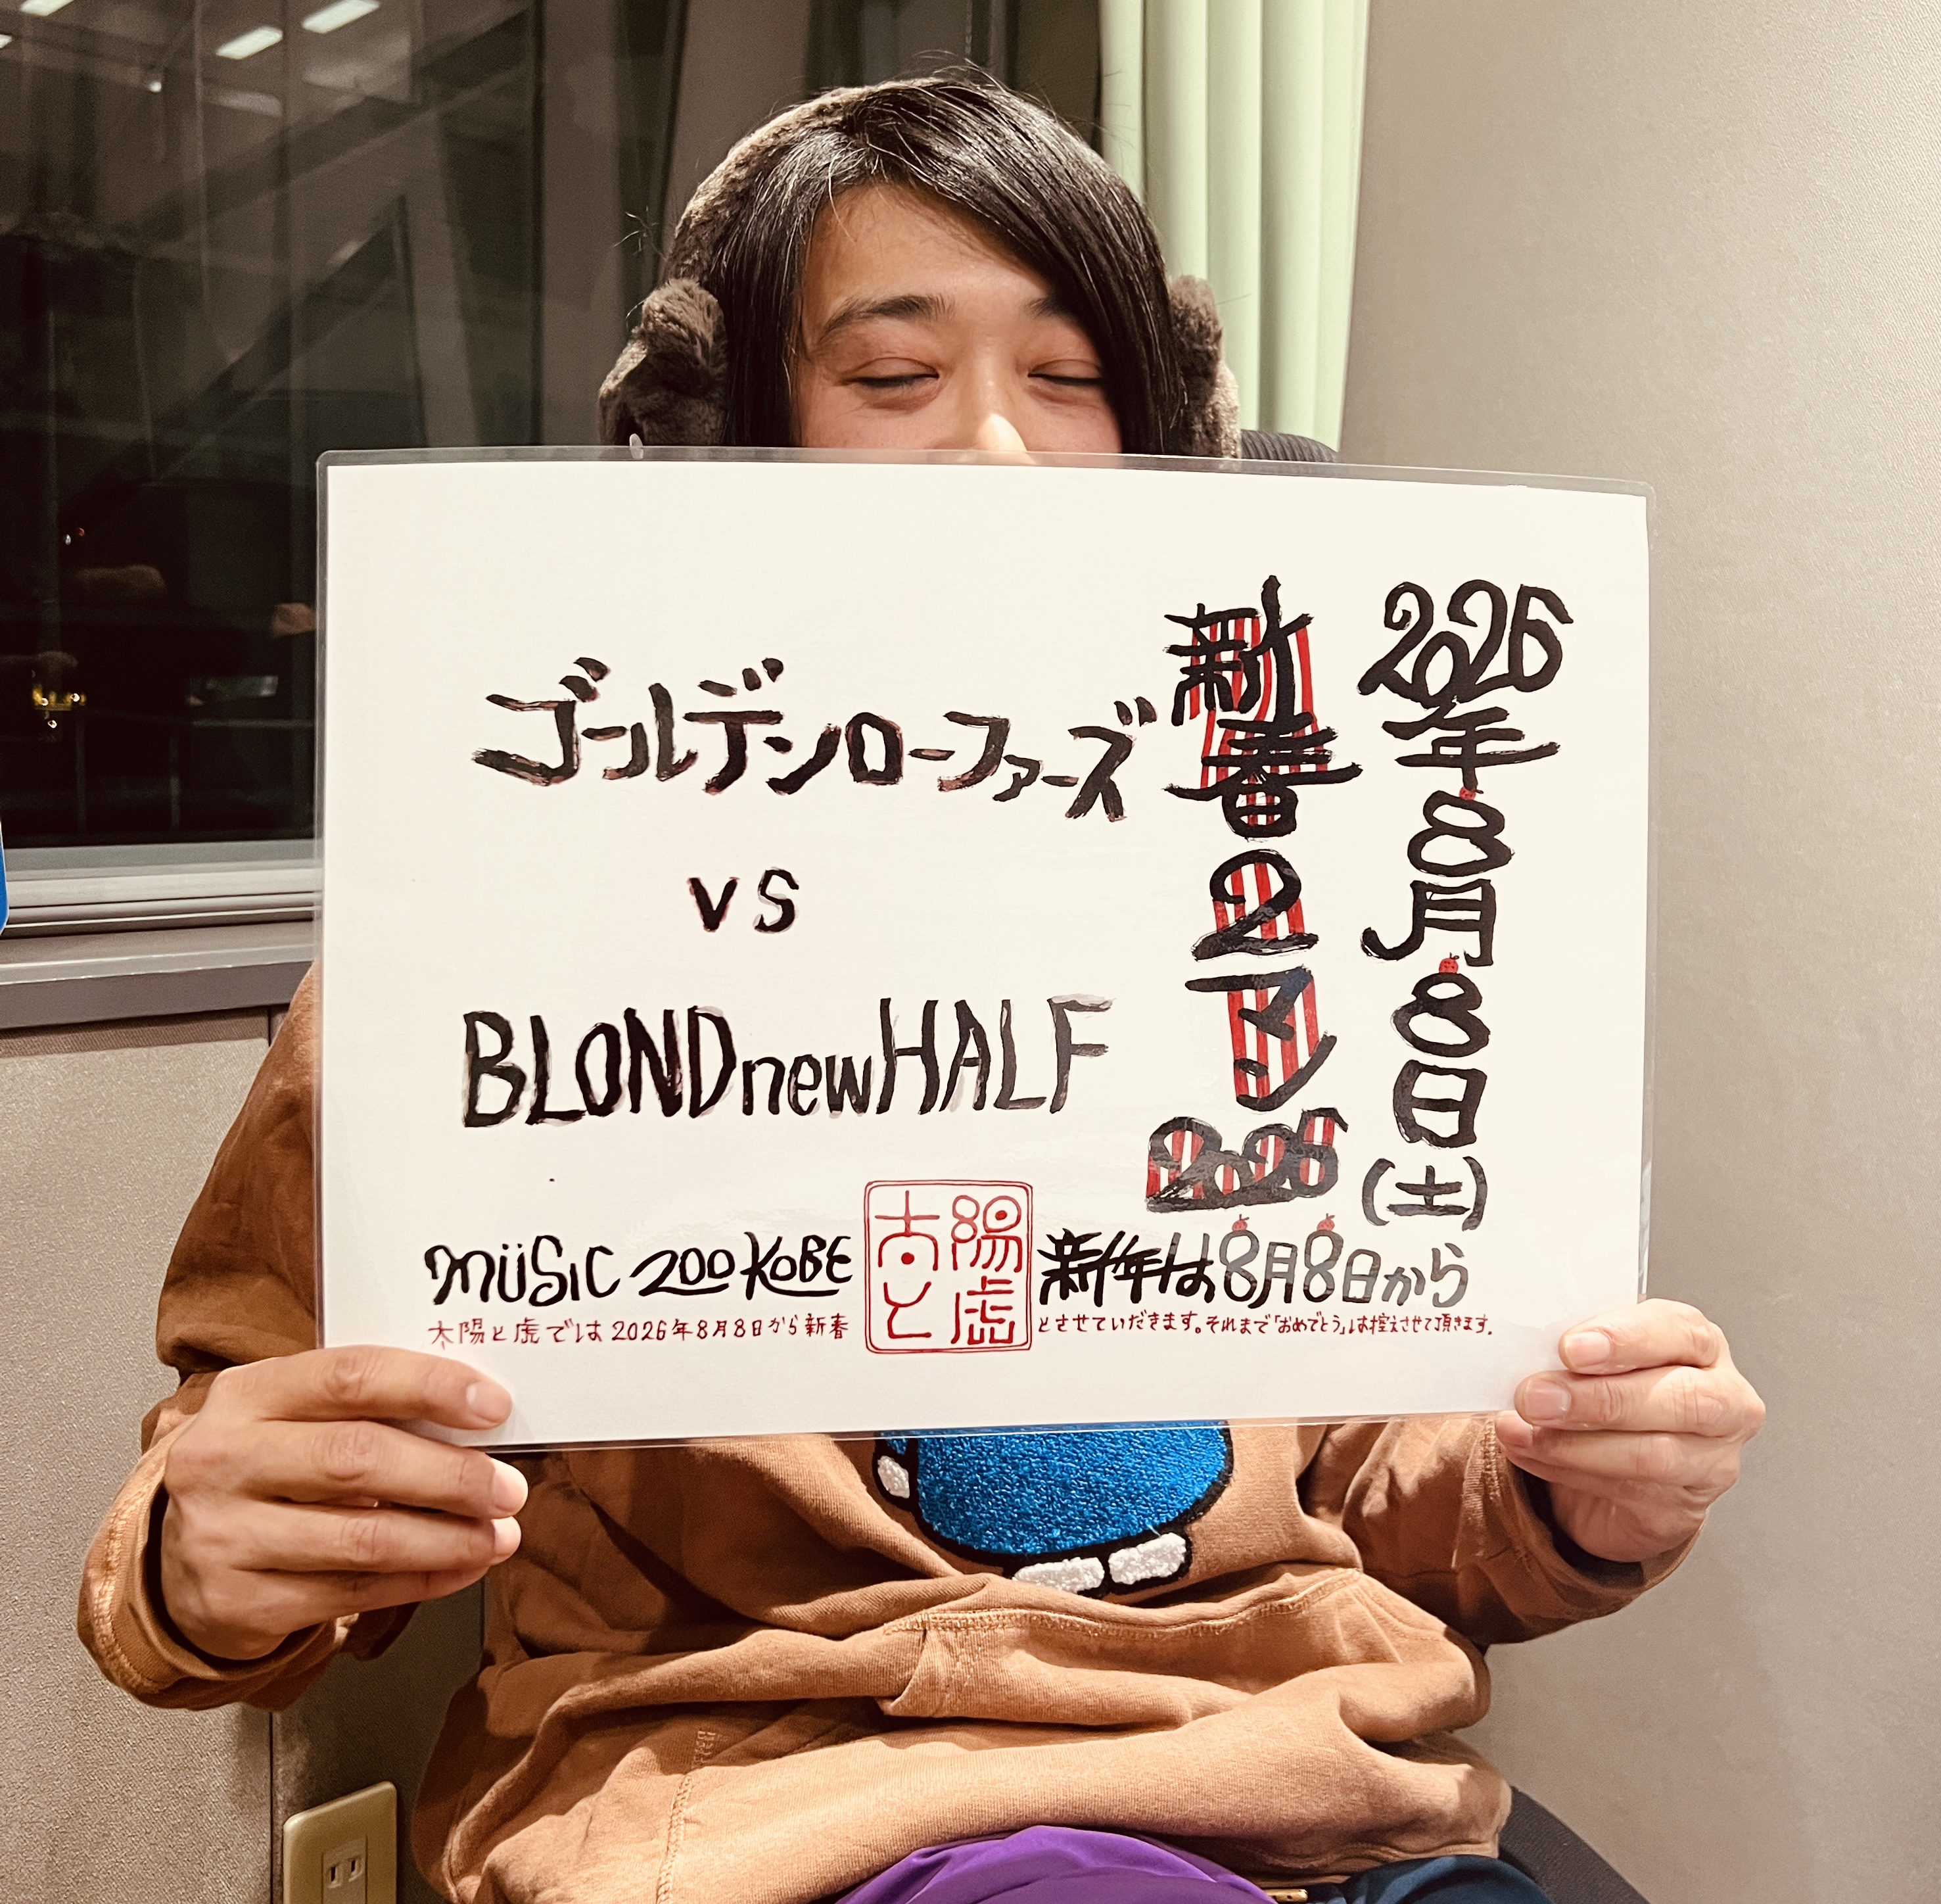 2026年8月8日(土)
新春2マン2026
ゴールデンローファーズ
vs
BLONDnewHALF
MÜSIC ZOO KOBE
太陽と虎
新年は8月8日から
太陽と虎では2026年8月8日から新春とさせていただきます。それまで「おめでとう」は控えさせて頂きます。